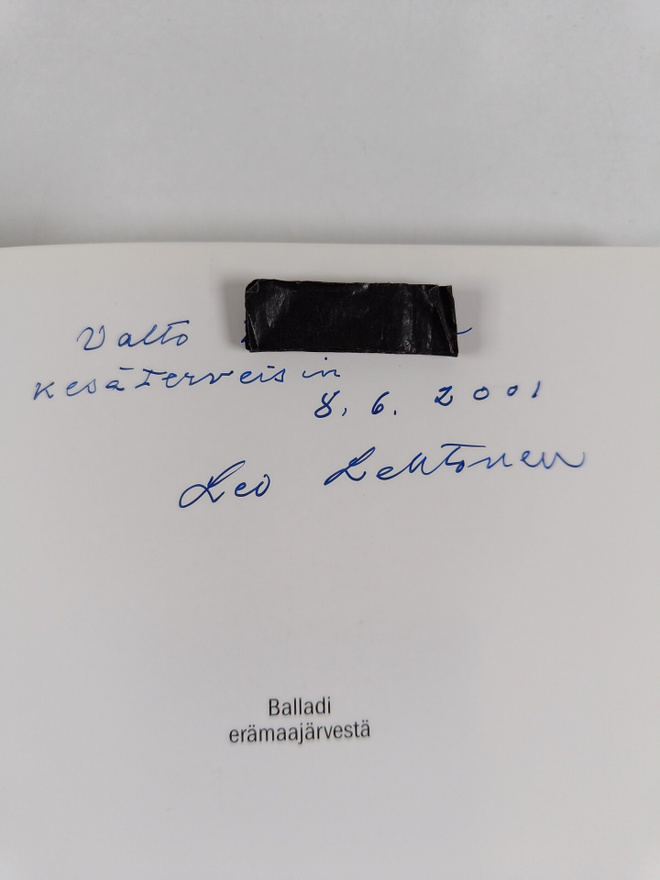 Valto
kesäterveisin
8. 6. 2001
Leo Lehtonen
Balladi
erämaajärvestä